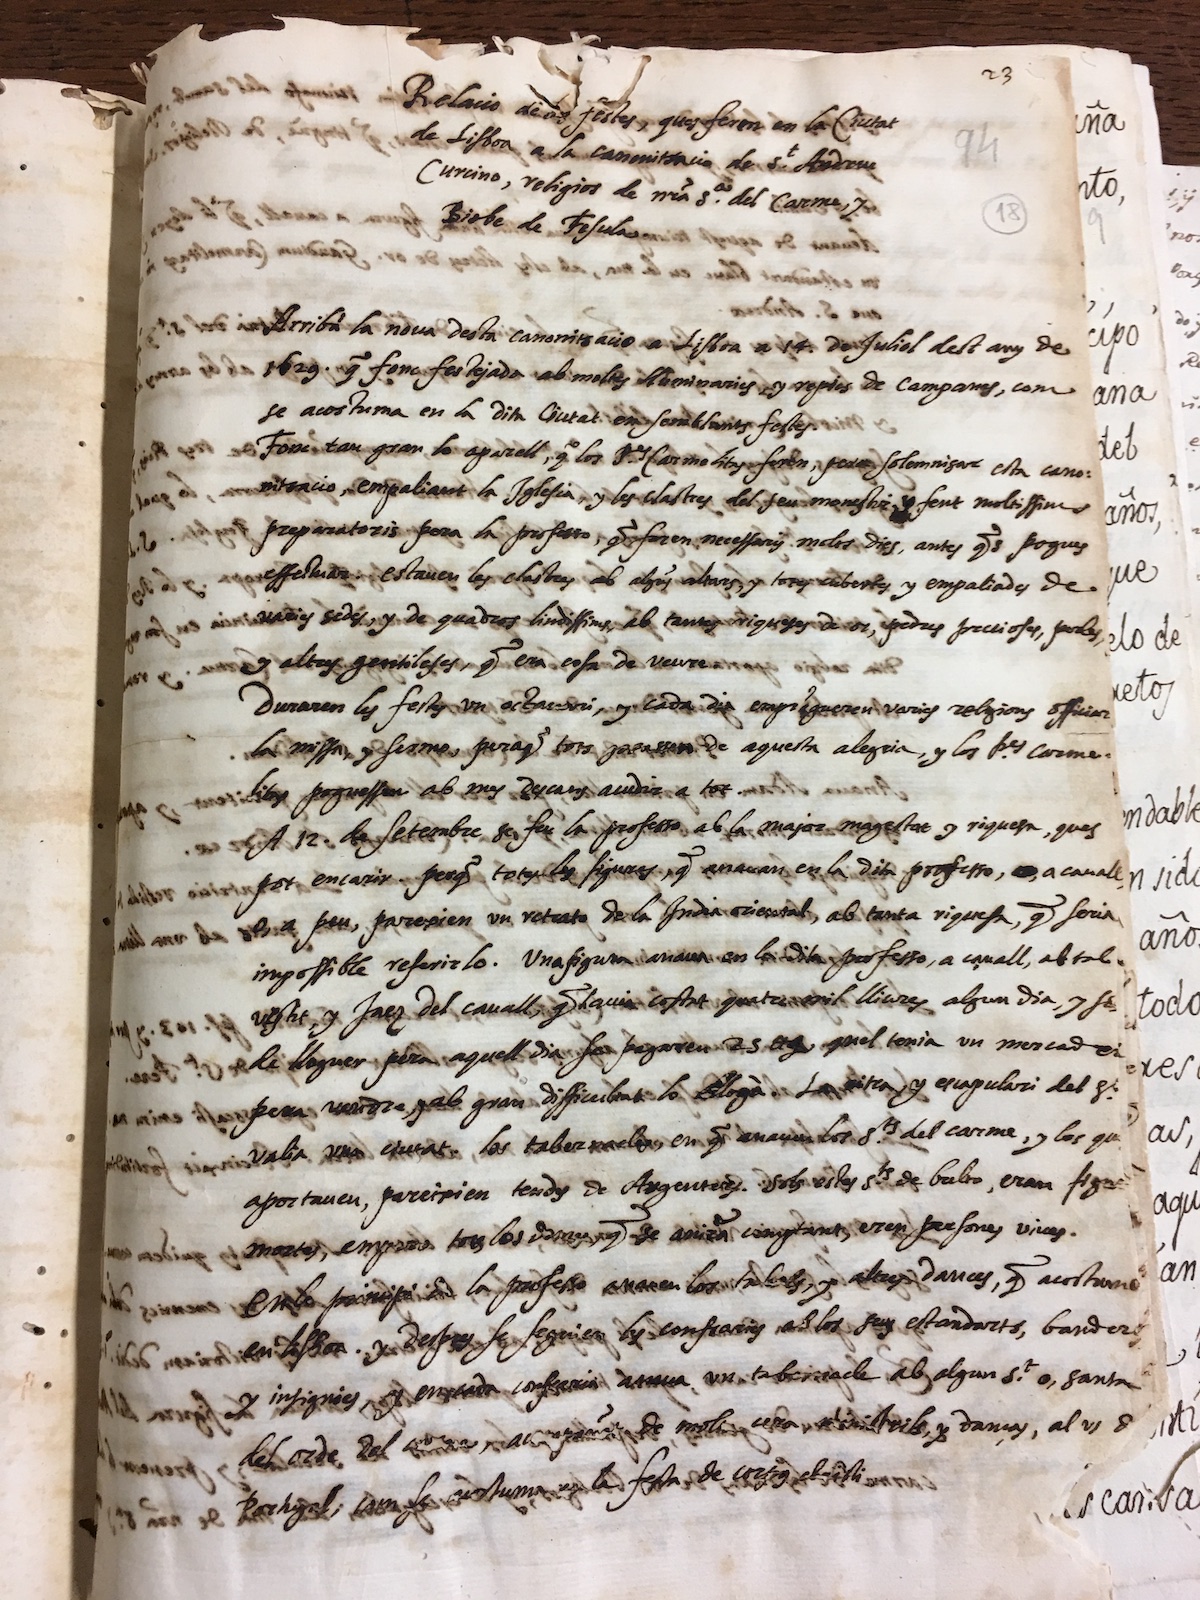 23
94
18
Relacio de les festes, ques feren en la Ciutat
de Lisboa a la canonitzacio de S.t Andreu
Curcino, religios de nra S.ra del Carme, y
Bisbe de Fesula
Arribà la nova desta canonizacio a Lisboa a 14. de Juliol dest any de
1629. q̃ fonc festejada ab moltes lluminaries, y repics de campanes, com
se acostuma en la dita Ciutat em semblants festes.
Fonc tan gran lo aparell, q̃ los P.es Carmelitas feren, pera solemnizar esta cano:
nitzacio, empaliant la Iglesia, y les clastres del seu monestir, y fent moltissims
preparatoris pera la professo, q̃ foren necessaris molts dies, antes q̃s pogues
effectuar. Estaven les clastres ab alg̃s altars, y totes cubertes y empaliades de
varies sedes, y de quadros lindissims, ab tantes riqueses de or, pedres precioses, perles,
y altres gentileses, q̃ era cosa de veure
Duraren les festes un octavari, y cada dia vingueren varies religions officiar
la missa, y sermo, peraq̃ tots gozassen de aquesta alegria, y los P.es Carme:
lites poguessen ab mes descans acudir a tot.
A 12. de Setembre se feu la professo ab la major magestat y riquesa, ques
pot encarir. perq̃ totes les figures, q̃ anavan en la dita professo, a cavall,
o a peu, pareixien un retrato de la India oriental, ab tanta riquesa, q̃ seria
impossible referirlo. Una figura anava en la dita professo, a cavall, ab tal
vestit, y Jaez del cavall, q̃ havia costat quatre mil lliures algun dia, y
de lloguer pera aquell dia se pagaren 25 quel tenia un mercader
pera vendre, y ab gran difficultat lo llogà. La mitra, y escapulari del S.t
valia una ciutat. los tabernacles, en q̃ anaven los S.ts del carme, y los qui
aportaven, pareixien tendes de Argenters. Sols estes S.ts de bulto, eran figures
mortes, empero tots los demes, q̃ se anirà comptant, eren persones vives.
En lo principi de la professo anaven los tabals, y altres dances, q̃ acostumen
en Lisboa. y despres se seguien les confraries ab los seus estandarts, banderes
y insignies, y en cada confraria anava un tabernacle ab algun S.t o, santa
del orde del carme, de molta cera, ministrils, y dances, al us de
Portugal, com se acostuma en la festa de corpus christi